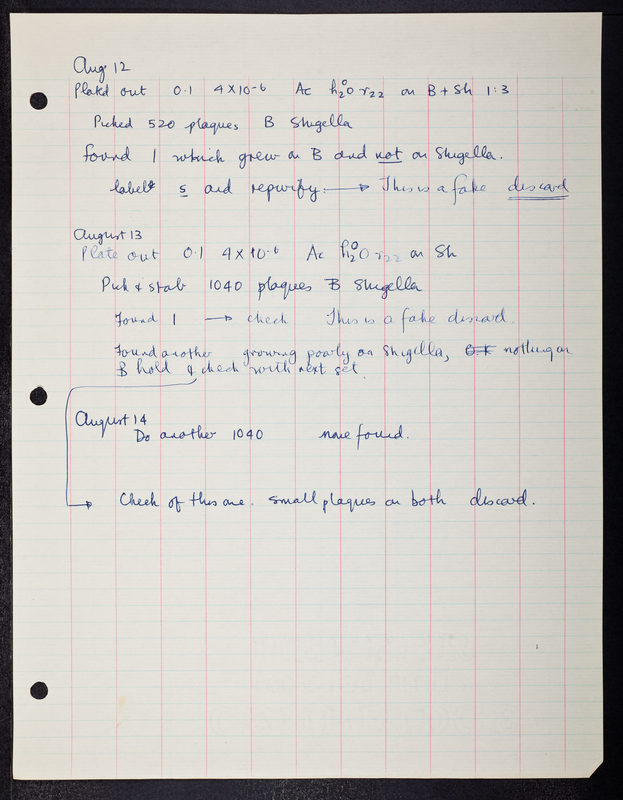 Aug 12
Plated out 0.1 4×10-6 Ac h20o r22 on B + Sh 1:3
Picked 520 plaques B Shigella
Found 1 which grew on B and not on Shigella.
label s and repurify: → This is a fake discard
August 13
Plate out 0.1 4×10-6 Ac h20O r22 on Sh
Pick & stab 1040 plaques B Shigella
Found 1 → check This is a fake discard.
Found another growing poorly on Shigella, nothing on
B hold & check with next set.
August 14
Do another 1040 none found.
→ Check of this one. small plaques on both discard.